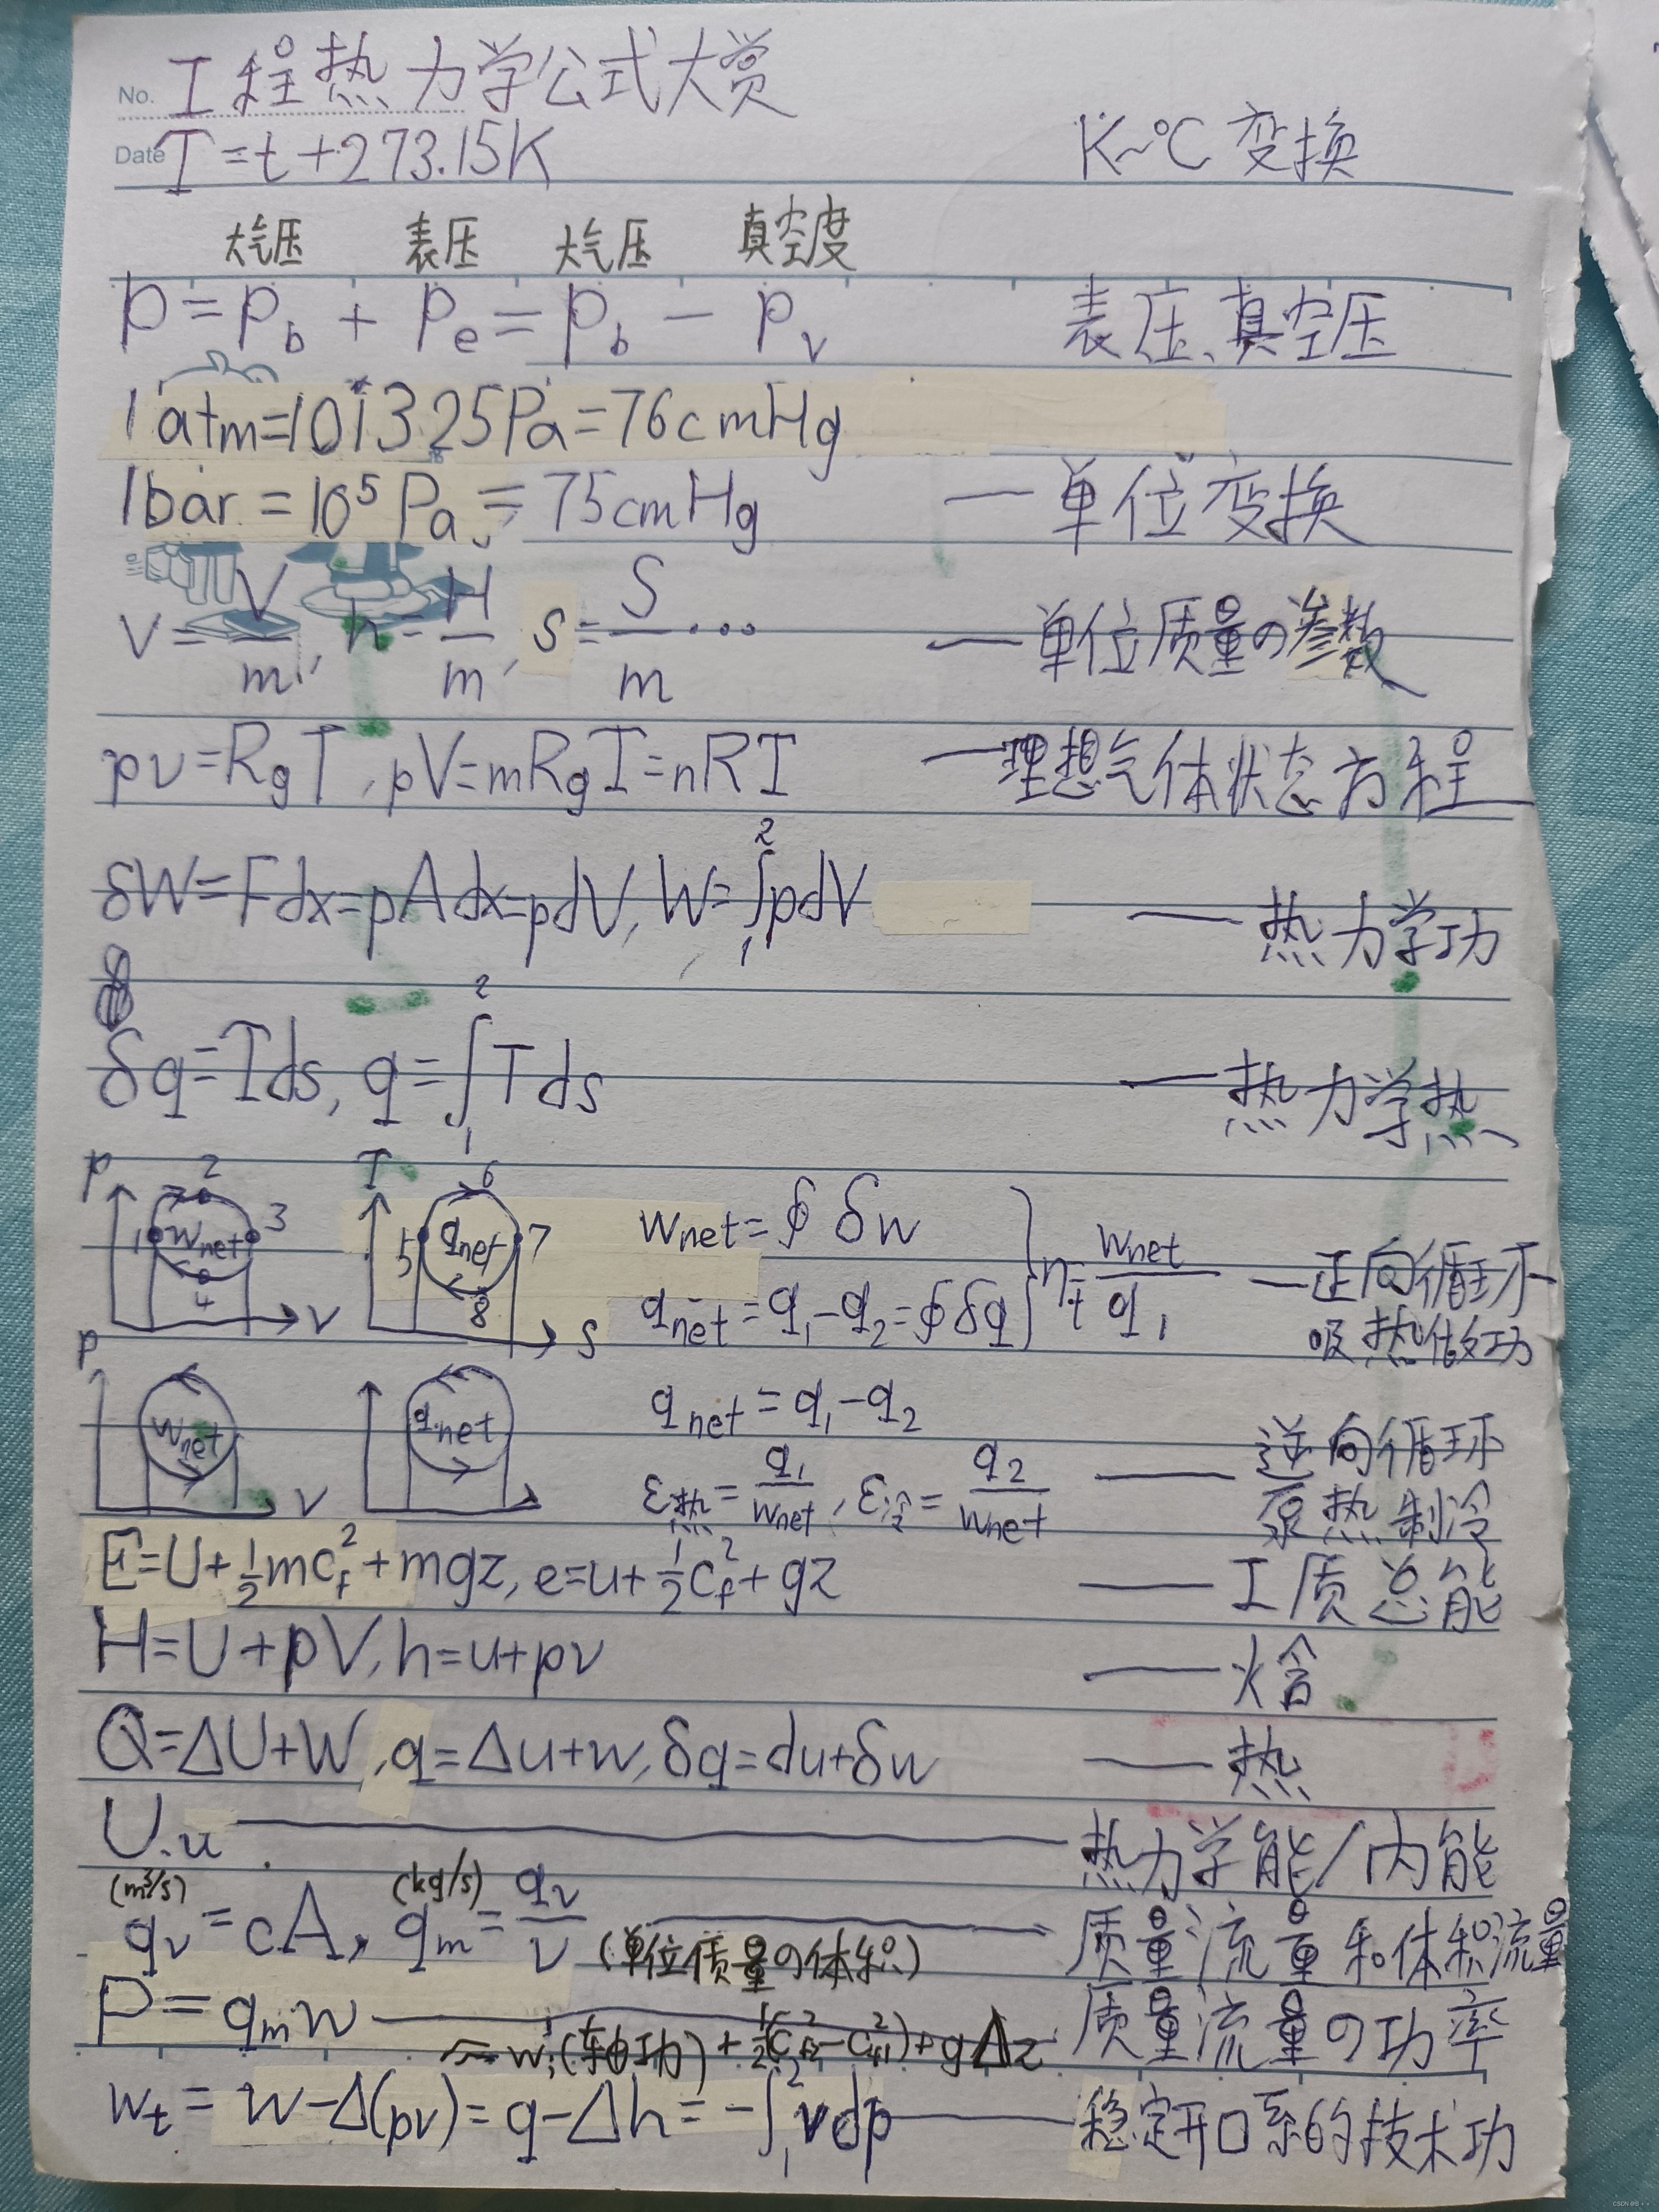 No. 工程热力学公式大赏
Date T=t+273.15K K~℃ 变换
大气压 表压 大气压 真空度
p=p_b + p_e=p_b − p_v 表压、真空压
1atm=101325Pa=76cmHg
1bar=10⁵Pa=75cmHg —单位变换
v=V/m, h=H/m, s=S/m··· —单位质量の参数
pv=R_gT, pV=mR_gT=nRT —理想气体状态方程
δW=Fdx=pAdx=pdV, W=∫₁²pdV —热力学功
δq=Tds, q=∫₁²Tds —热力学热
p 1 2 3 4 w_net v
T 5 6 7 8 q_net s
w_net=∮δw
q_net=q₁−q₂=∮δq } η_t=w_net/q₁ —正向循环
吸热做功
p w_net v
q_net
q_net=q₁−q₂
ε热=q₁/w_net, ε冷=q₂/w_net —逆向循环
泵热制冷
E=U+½mc_f²+mgz, e=u+½c_f²+gz —工质总能
H=U+pV, h=u+pv —焓
Q=ΔU+W, q=Δu+w, δq=du+δw —热
U.u —热力学能/内能
(m³/s) (kg/s)
q_v=cA, q_m=q_v/v (单位质量の体积) —质量流量和体积流量
P=q_m w —质量流量の功率
w_i(轴功)+½(c_f2²−c_f1²)+gΔz
w_t=w−Δ(pv)=q−Δh=−∫₁²vdp —稳定开口系的技术功